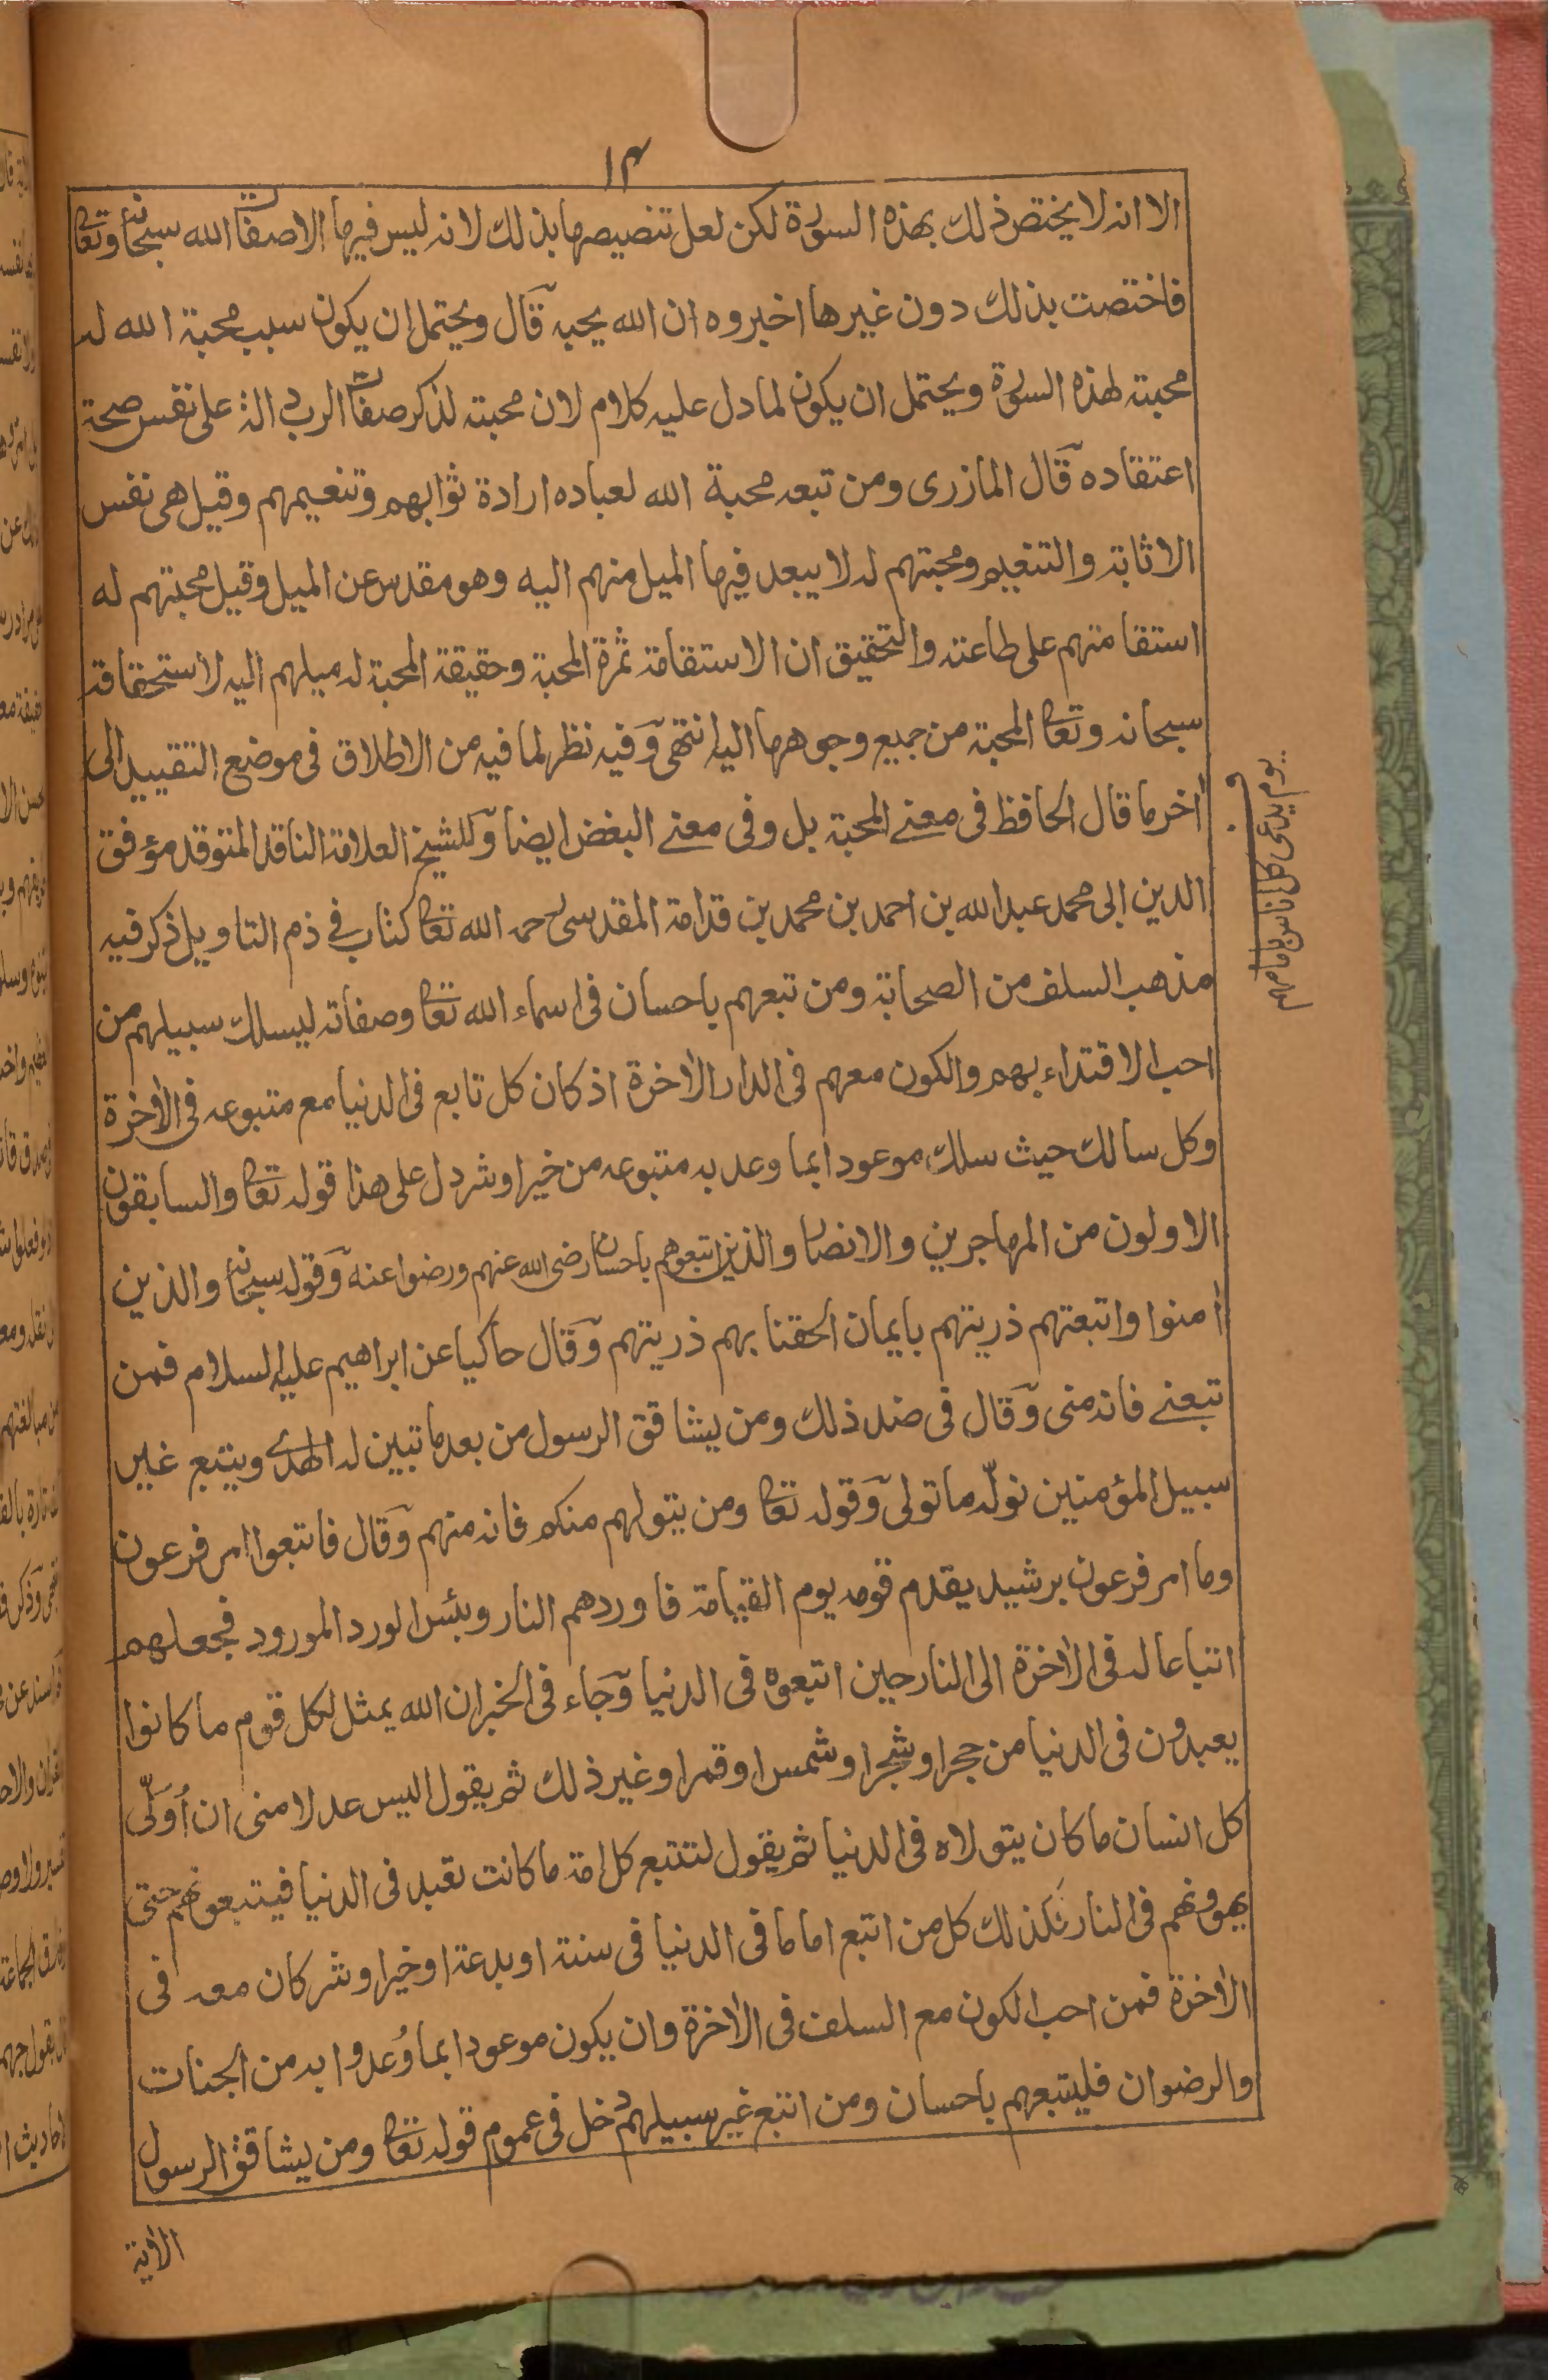 ١٤
الا انه لا يختص ذلك بهذه السورة لكن لعل تنصيصها بذلك لانه ليس فيها الا صفات الله سبحانه وتعا
فاختصت بذلك دون غيرها اخبروه ان الله يحبه قال ويحتمل ان يكون سبب محبة الله له
محبته لهذه السورة ويحتمل ان يكون لما دل عليه كلام لان محبته لذكر صفات الرب دالة على نفس صحة
اعتقاده قال المازرى ومن تبعه محبة الله لعباده ارادة ثوابهم وتنعيمهم وقيل هى نفس
الاثابة والتنعيم ومحبتهم له لا يبعد فيها الميل منهم اليه وهو مقدس عن الميل وقيل محبتهم له
استقامتهم على طاعته والتحقيق ان الاستقامة ثمرة المحبة وحقيقة المحبة له ميلهم اليه لاستحقاقه
سبحانه وتعا المحبة من جميع وجوهها اليه انتهى وفيه نظر لما فيه من الاطلاق فى موضع التقييد الى
أخر ما قال الحافظ فى معنے المحبة بل وفى معنے البغض ايضا وللشيخ العلامة الناقد المتوقد مؤفق
الدين ابى محمد عبد الله بن احمد بن محمد بن قدامة المقدسى رحمه الله تعا كتاب فے ذم التاويل ذكر فيه
مذهب السلف من الصحابة ومن تبعهم باحسان فى اسماء الله تعا وصفاته ليسلك سبيلهم من
احب الاقتداء بهم والكون معهم فى الدار الاخرة اذ كان كل تابع فى الدنيا مع متبوعه فى الاخرة
وكل سالك حيث سلك موعودا بما وعد به متبوعه من خير او شر دل على هذا قوله تعا والسابقون
الاولون من المهاجرين والانصار والذين اتبعوهم باحسان رضى الله عنهم ورضوا عنه وقوله سبحانه والذين
أمنوا واتبعتهم ذريتهم بايمان الحقنا بهم ذريتهم وقال حاكيا عن ابراهيم عليه السلام فمن
تبعنے فانه منى وقال فى ضد ذلك ومن يشاقق الرسول من بعد ما تبين له الهدے ويتبع غير
سبيل المؤمنين نولّه ما تولى وقوله تعا ومن يتولهم منكم فانه منهم وقال فاتبعوا امر فرعون
وما امر فرعون برشيد يقدم قومه يوم القيامة فاوردهم النار وبئس الورد المورود فجعلهم
اتباعا له فى الاخرة الى النار حين اتبعوه فى الدنيا وجاء فى الخبر ان الله يمثل لكل قوم ما كانوا
يعبدون فى الدنيا من حجر او شجر او شمس او قمر او غير ذلك ثم يقول اليس عدلا منى ان أُوَلّى
كل انسان ما كان يتولاه فى الدنيا ثم يقول لتتبع كل امة ما كانت تعبد فى الدنيا فيتبعونهم حتى
يهوونهم فى النار فكذلك كل من اتبع اماما فى الدنيا فى سنة او بدعة او خير او شر كان معه فى
الاخرة فمن احب الكون مع السلف فى الاخرة وان يكون موعودا بما وُعدوا به من الجنات
والرضوان فليتبعهم باحسان ومن اتبع غير سبيلهم دخل فى عموم قوله تعا ومن يشاقق الرسول
الاية
يوم يدعى كل اناس بامامهم